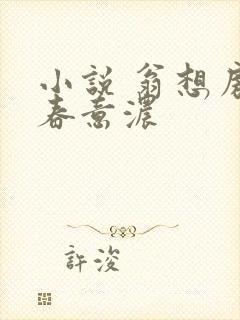 小說 翁想房
春意濃
許浚